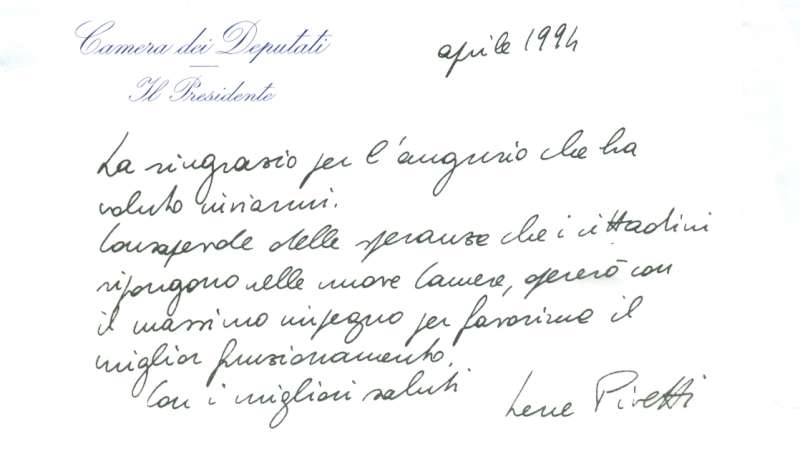 Camera dei Deputati
Il Presidente
aprile 1994
La ringrazio per l'augurio che ha
voluto inviarmi.
Consapevole delle speranze che i cittadini
ripongono nelle nuove Camere, opererò con
il massimo impegno per favorirne il
miglior funzionamento.
Con i migliori saluti
Irene Pivetti